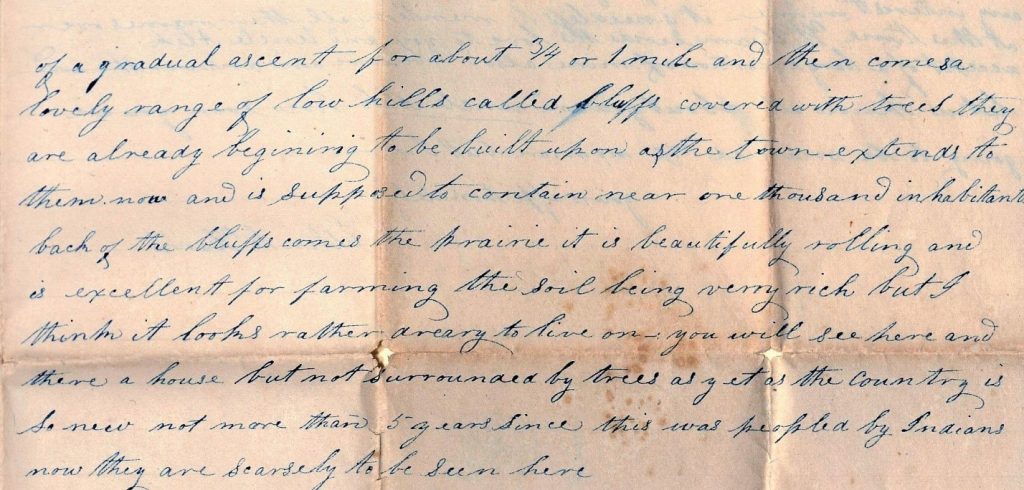 of a gradual ascent for about 3/4 or 1 mile and then comes a
lovely range of low hills called bluffs covered with trees they
are already begining to be built upon as the town extends to
them now and is supposed to contain near one thousand inhabitants
back of the bluffs comes the prairie it is beautifully rolling and
is excellent for farming the soil being verry rich but I
think it looks rather dreary to live on – you will see here and
there a house but not surrounded by trees as yet as the country is
so new not more than 5 years since this was peopled by Indians
now they are scarsely to be seen here